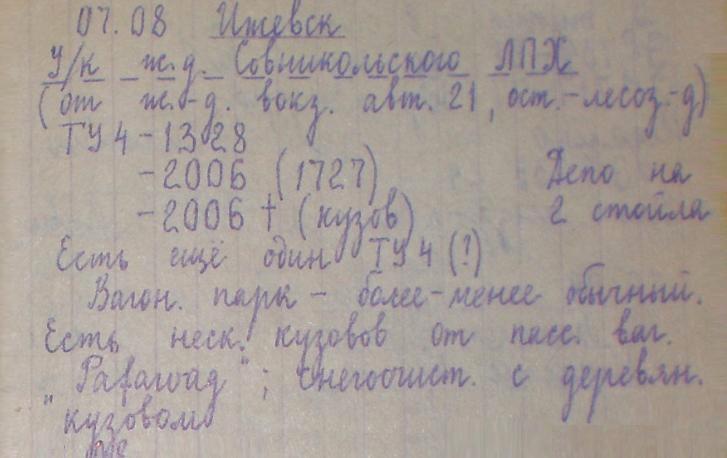 07.08 Ижевск
У/к ж.д. Совникольского ЛПХ
(от ж.-д. вокз. авт. 21, ост.-лесоз-д)
ТУ4-1328
-2006 (1727) Депо на
-2006 † (кузов) 2 стойла
Есть ещё один ТУ4 (!)
Вагон. парк - более-менее обычный.
Есть неск. кузовов от пасс. ваг.
"Pafawag"; снегоочист. с деревян.
кузовом